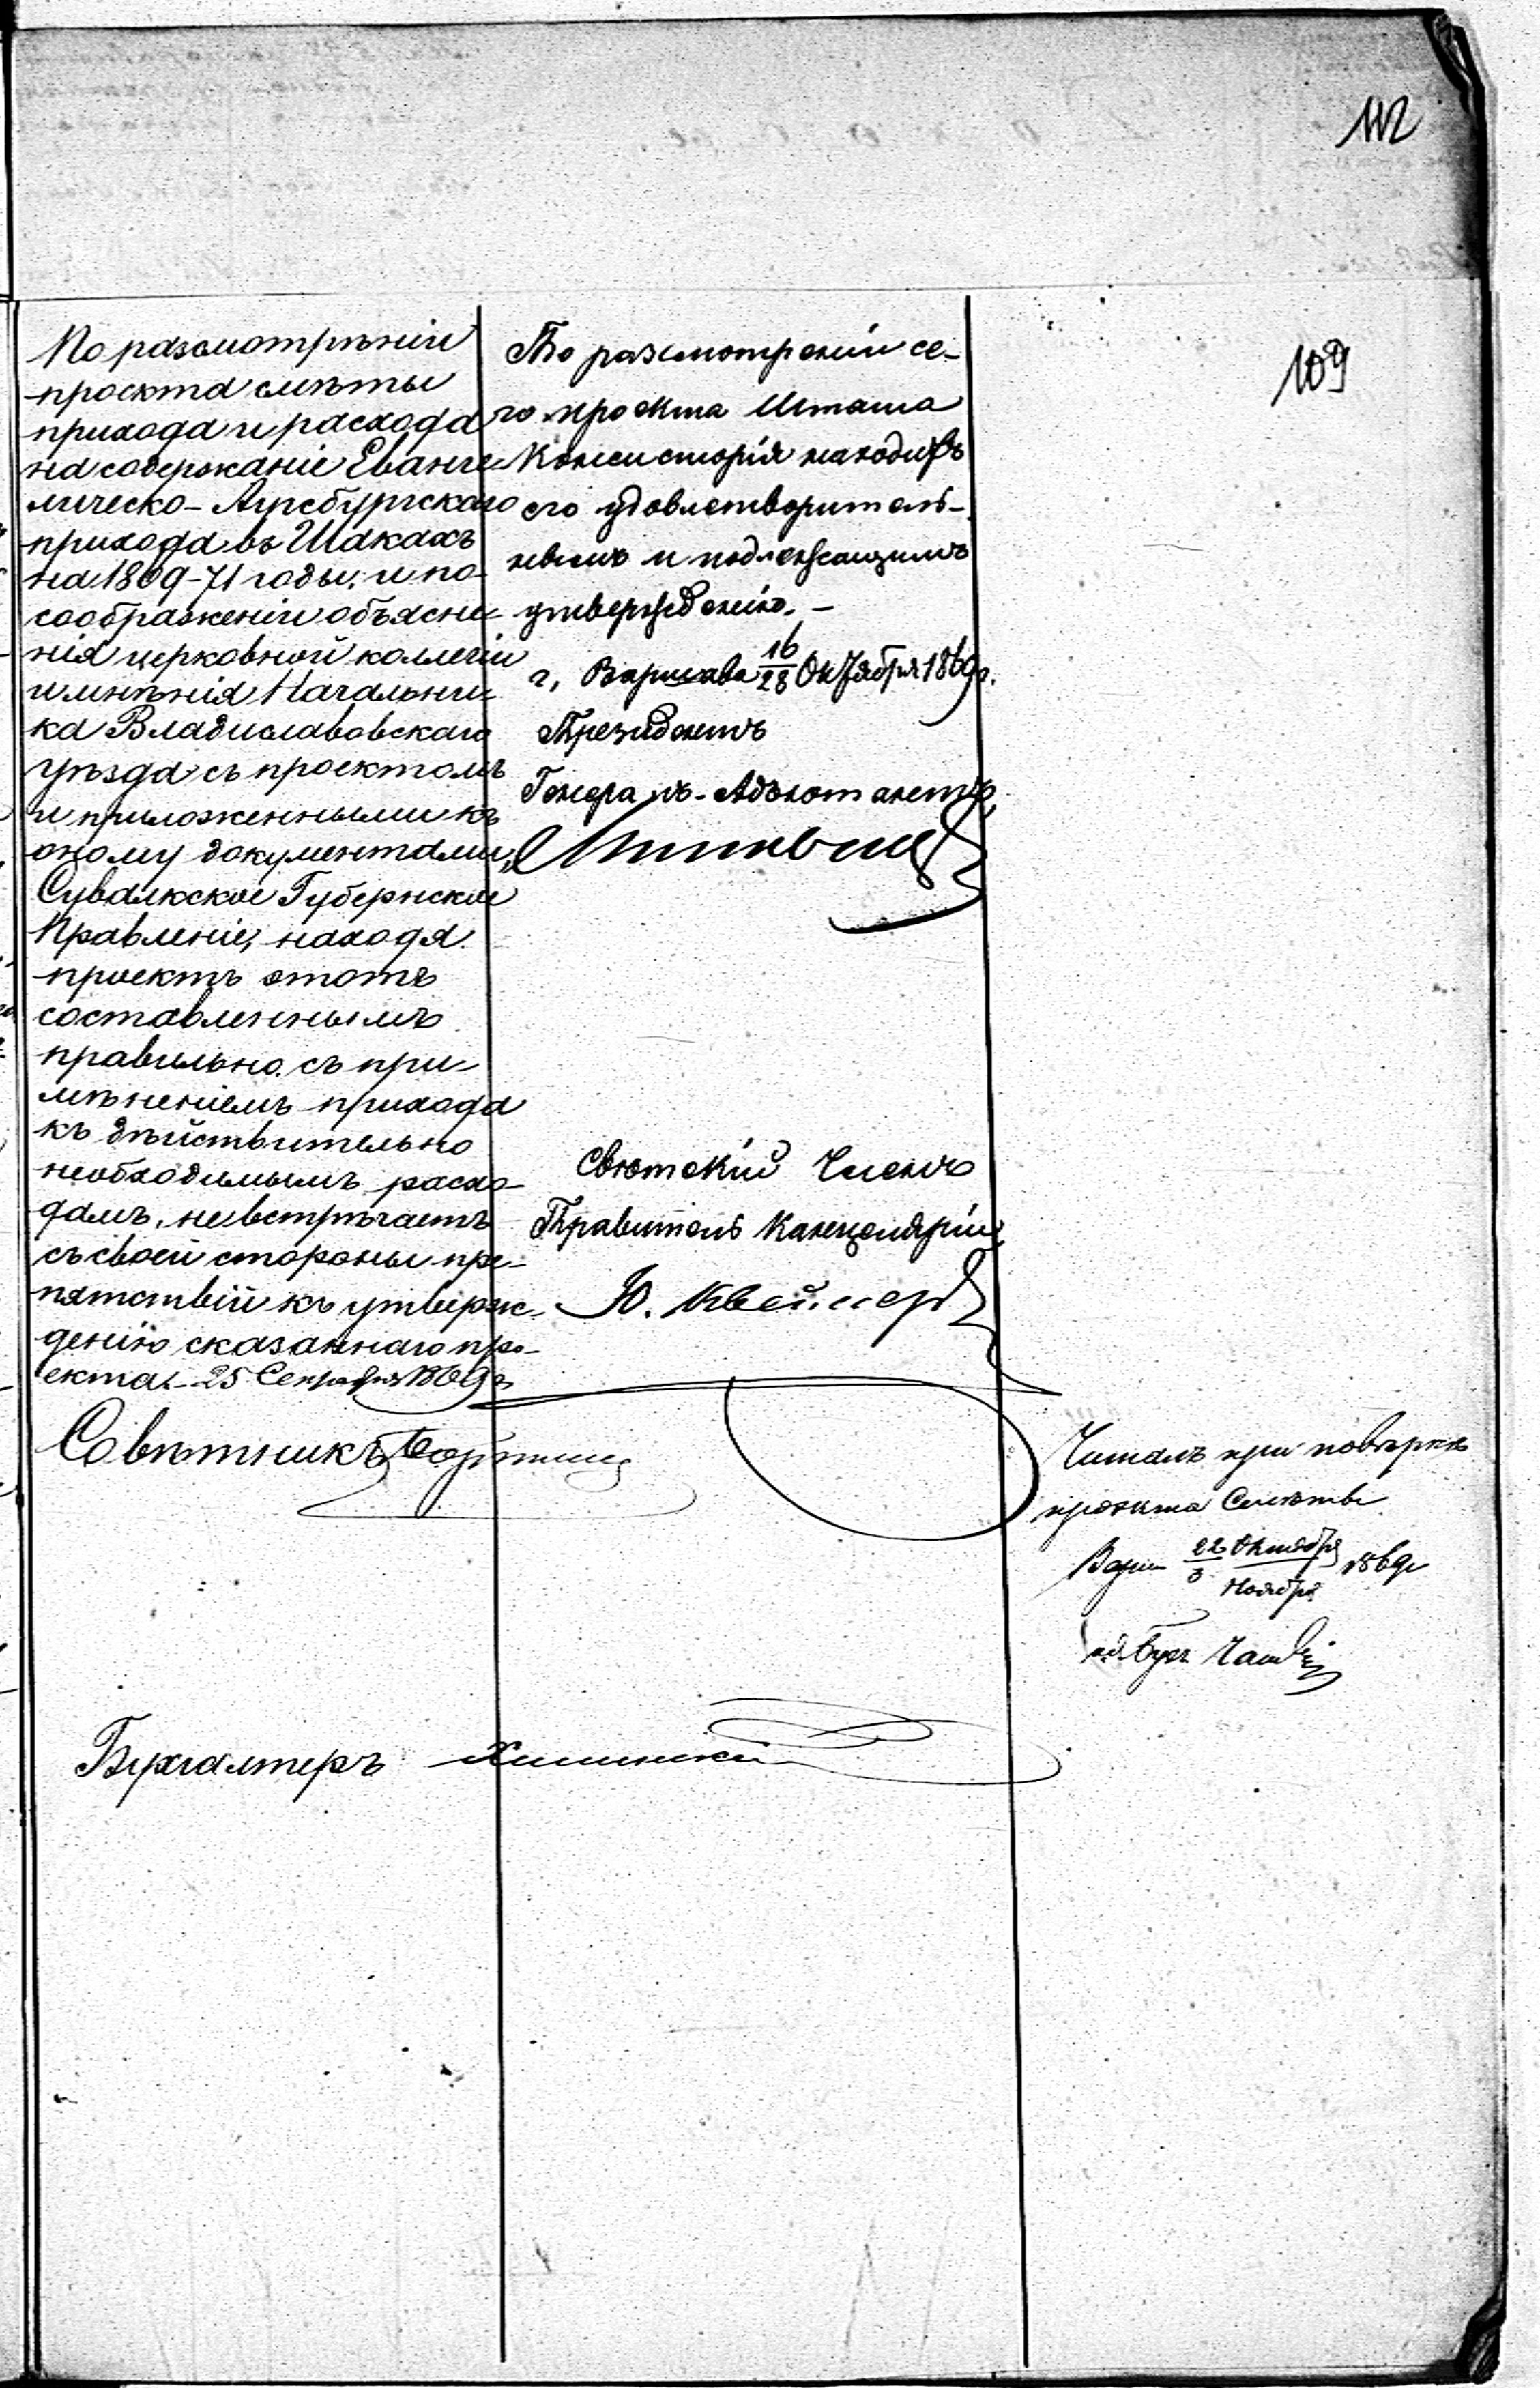 112
109
По разсмотрѣніи
проекта смѣты
прихода и расхода
на содержаніе Еванге-
лическо-Аугсбургскаго
прихода въ Шакахъ
на 1869-71 годы, и по
соображеніи объясне-
нія церковной коллегіи
и мнѣнія Начальни-
ка Владиславовскаго
уѣзда съ проектомъ
и приложенными къ
оному документами,
Сувалкское Губернское
Правленіе, находя
проектъ этотъ
составленнымъ
правильно съ при-
мѣненіемъ прихода
къ дѣйствительно
необходимымъ расхо-
дамъ, не встрѣчаетъ
съ своей стороны пре-
пятствій къ утверж-
денію сказаннаго про-
екта. 25 Сентября 1869 г.
Совѣтникъ
Бухгалтеръ
По разсмотреніи се-
го проекта Штата
Консисторія находитъ
его удовлетворитель-
нымъ и подлежащимъ
утвержденію. -
г, Варшава 16/28 Октября 1869 г.
Президентъ
Генералъ-Адъютантъ,
Свѣтскій Членъ
Правитель Канцеляріи,
Читалъ при повѣркѣ
проекта Смѣты
Варш 22 Октября/3 Ноября 1869
Бухг